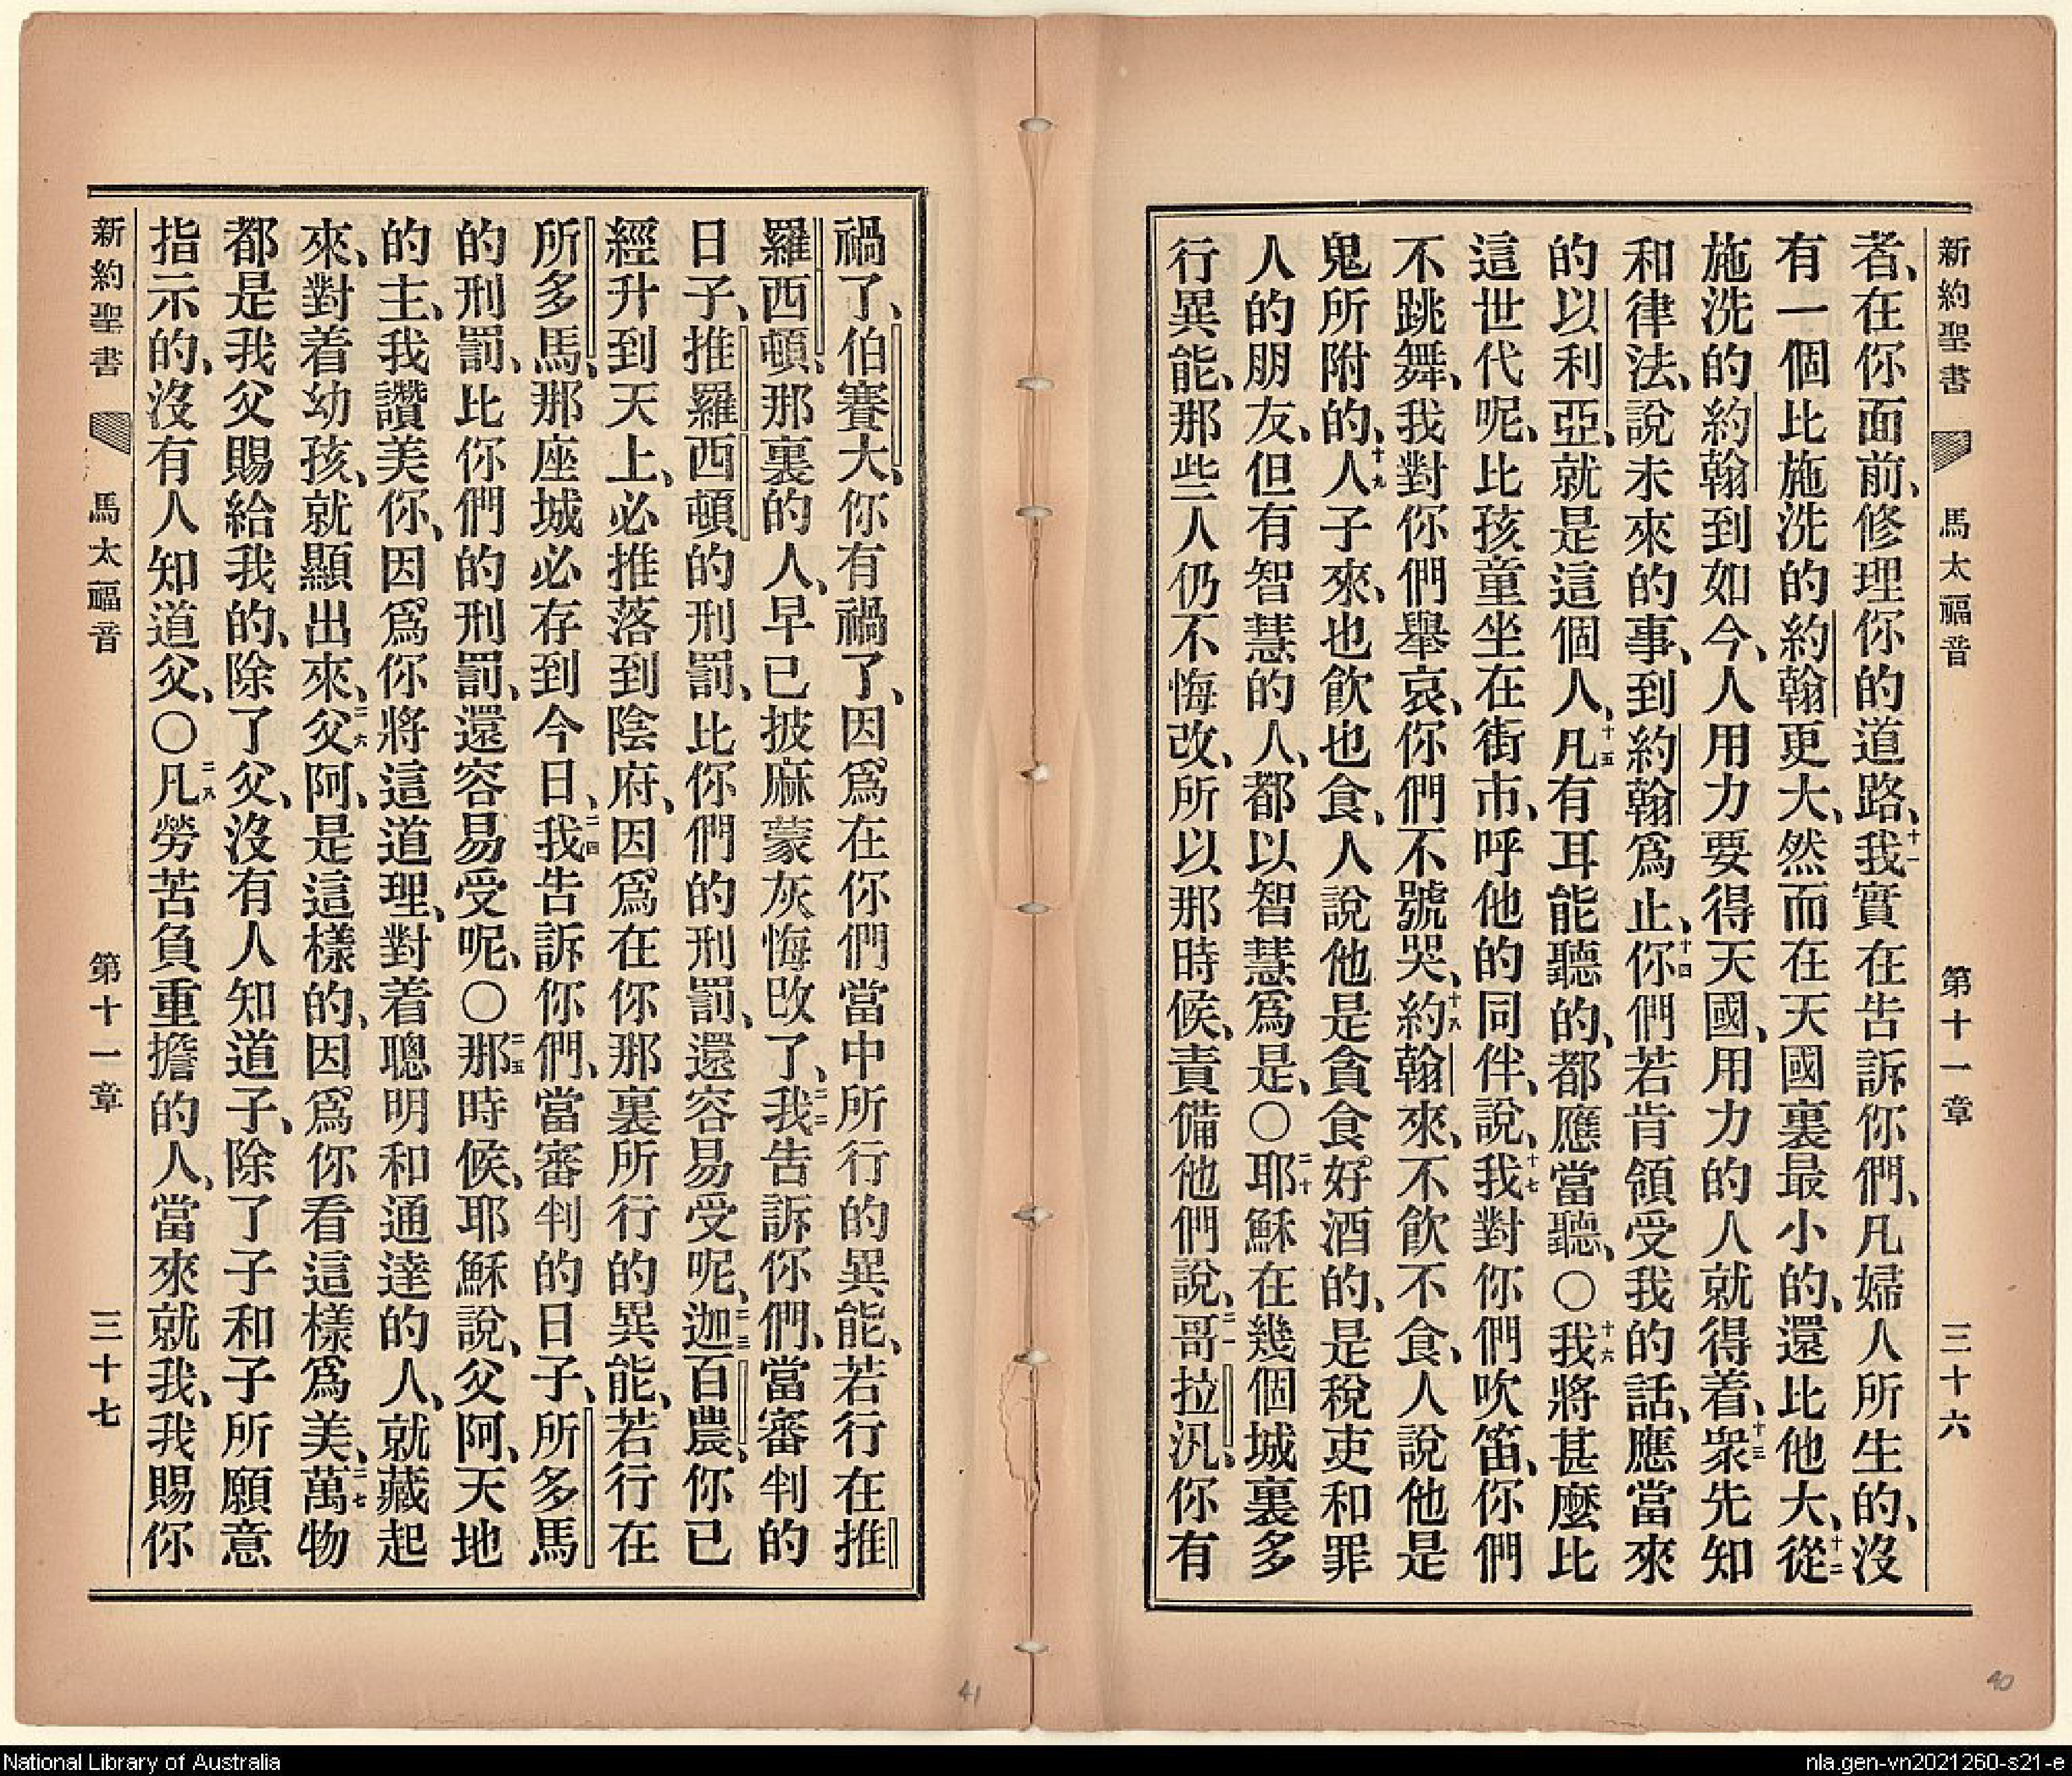 新約聖書 馬太福音 第十一章 三十六
者、在你面前、修理你的道路、十一我實在告訴你們、凡婦人所生的、沒
有一個比施洗的約翰更大、然而在天國裏最小的、還比他大、十二從
施洗的約翰到如今、人用力要得天國、用力的人就得着、十三衆先知
和律法、說未來的事、到約翰爲止、十四你們若肯領受我的話、應當來
的以利亞、就是這個人、十五凡有耳能聽的、都應當聽、〇十六我將甚麼比
這世代呢、比孩童坐在街市、呼他的同伴、說、十七我對你們吹笛、你們
不跳舞、我對你們舉哀、你們不號哭、十八約翰來、不飲不食、人說他是
鬼所附的、十九人子來、也飲也食、人說他是貪食好酒的、是稅吏和罪
人的朋友、但有智慧的人、都以智慧爲是、〇二十耶穌在幾個城裏多
行異能、那些人仍不悔改、所以那時候、責備他們說、二一哥拉汎、你有
禍了、伯賽大、你有禍了、因爲在你們當中所行的異能、若行在推
羅西頓、那裏的人、早已披麻蒙灰悔改了、二二我告訴你們、當審判的
日子、推羅西頓的刑罰、比你們的刑罰、還容易受呢、二三迦百農、你已
經升到天上、必推落到陰府、因爲在你那裏所行的異能、若行在
所多馬、那座城必存到今日、二四我告訴你們、當審判的日子、所多馬
的刑罰、比你們的刑罰、還容易受呢、〇二五那時候、耶穌說、父阿、天地
的主、我讚美你、因爲你將這道理、對着聰明和通達的人、就藏起
來、對着幼孩、就顯出來、二六父阿、是這樣的、因爲你看這樣爲美、二七萬物
都是我父賜給我的、除了父、沒有人知道子、除了子和子所願意
指示的、沒有人知道父、〇二八凡勞苦負重擔的人、當來就我、我賜你
新約聖書 馬太福音 第十一章 三十七
41
40
National Library of Australia
nla.gen-vn2021260-s21-e